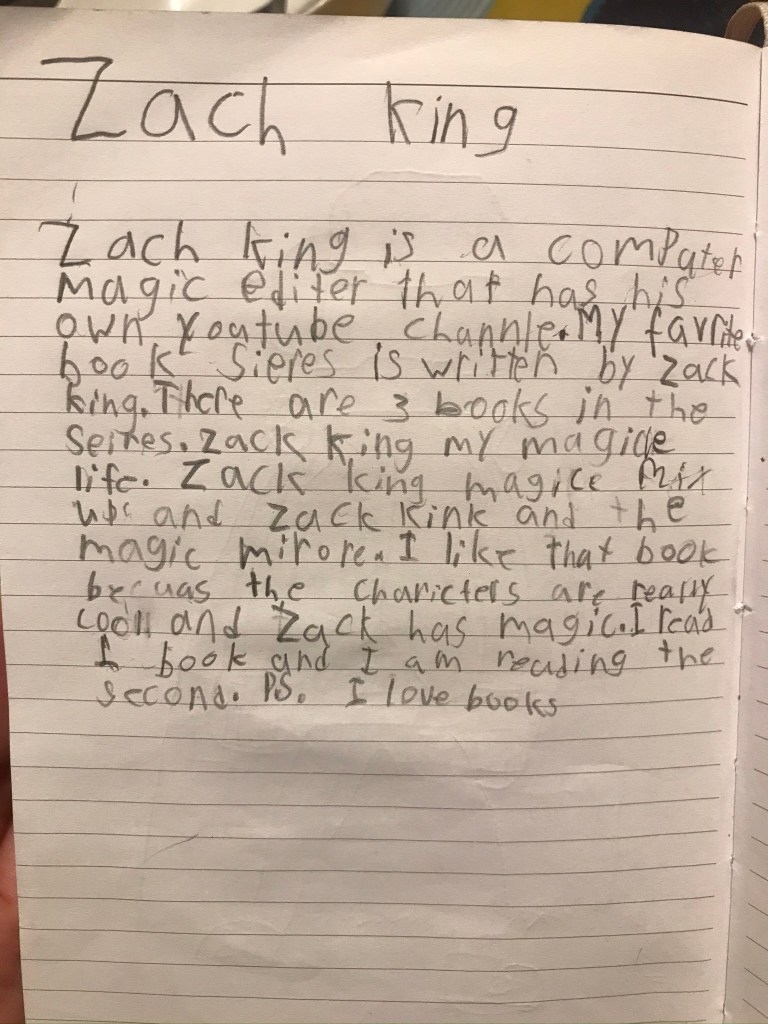 Zach king
Zach king is a compater
magic editer that has his
own Youtube channle. My favrite
book sieres is written by Zack
king. There are 3 books in the
seires. Zack king my magice
life. Zack king magice mix
ups and Zack Kink and the
magic mirore. I like that book
becuas the charicters are really
cool and Zack has magic. I read
1 book and I am reading the
second. PS. I love books